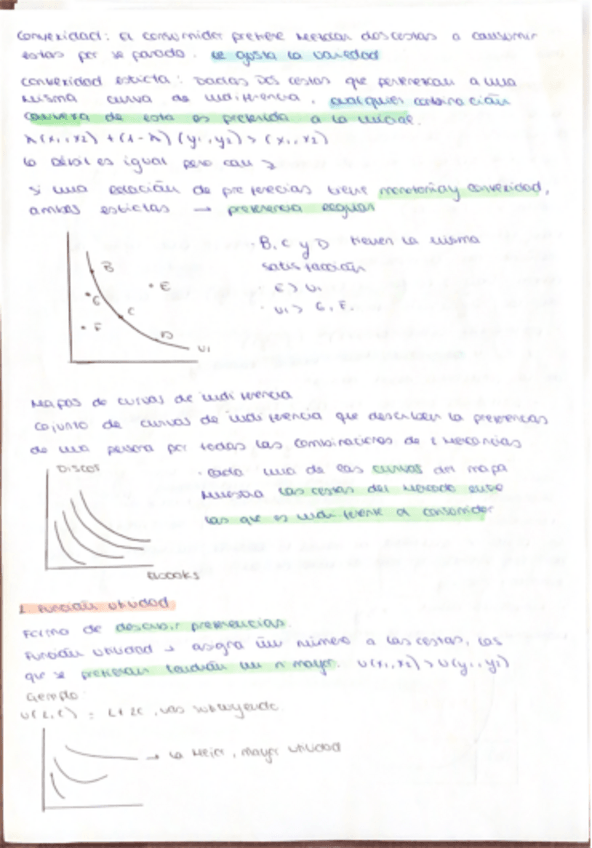 Convexidad: El consumidor prefiere mezclar dos cestas a consumir
estas por separado. Le gusta la variedad
convexidad estricta: Dadas Dos cestas que pertenezcan a una
misma curva de indiferencia, cualquier combinación
convexa de esta es preferida a la inicial.
λ(x₁,x₂) + (1-λ)(y₁,y₂) > (x₁,x₂)
la débil es igual pero con ≥
si una relación de preferecias tiene monotonia y convexidad,
ambas estrictas → preferencia regular
· B, C y D tienen la misma
satisfacción
· E > U₁
· U₁ > G, F.
B
E
G
C
F
D
U₁
Mapas de curvas de indiferencia
Cojunto de curvas de indiferencia que describen la preferencias
de una persona por todas las combinaciones de 2 mercancias
DISCOS
· cada una de las curvas del mapa
muestra las cestas del mercado entre
las que es indiferente al consumidor
EBOOKS
2. Función utilidad
Forma de describir preferencias.
Función utilidad → asigna un número a las cestas, las
que se prefieran tendrán un nº mayor. U(x₁,x₂) > U(y₁,y₂)
Ejemplo:
→ la mejor, mayor utilidad